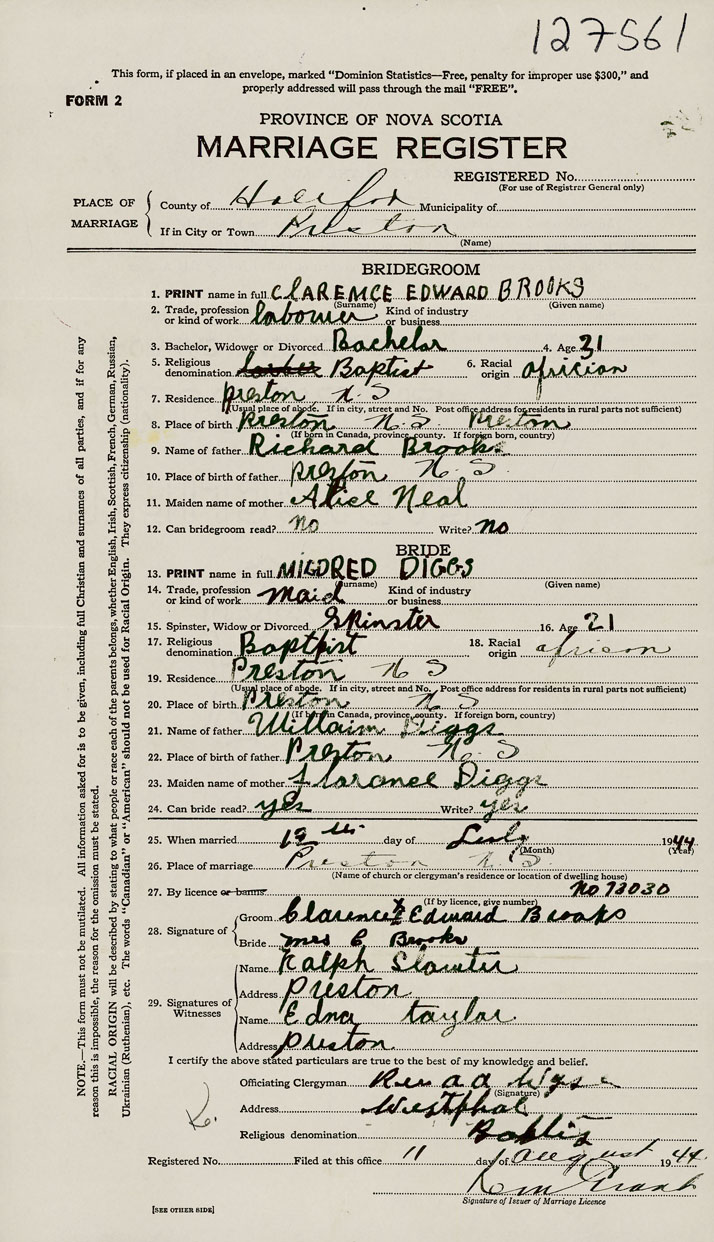 127561
This form, if placed in an envelope, marked "Dominion Statistics—Free, penalty for improper use $300," and
properly addressed will pass through the mail "FREE".
FORM 2
PROVINCE OF NOVA SCOTIA
MARRIAGE REGISTER
REGISTERED No.
(For use of Registrar General only)
PLACE OF MARRIAGE
County of Halifax Municipality of
If in City or Town Preston
(Name)
BRIDEGROOM
1. PRINT name in full CLARENCE EDWARD BROOKS
(Surname) (Given name)
2. Trade, profession or kind of work labourer Kind of industry or business
3. Bachelor, Widower or Divorced Bachelar 4. Age 21
5. Religious denomination Baptist 6. Racial origin africian
7. Residence preston N. S
(Usual place of abode. If in city, street and No. Post office address for residents in rural parts not sufficient)
8. Place of birth Preston N. S. Preton
(If born in Canada, province, county. If foreign born, country)
9. Name of father Richard Brooks
10. Place of birth of father preston N. S.
11. Maiden name of mother Alice Neal
12. Can bridegroom read? no Write? no
BRIDE
13. PRINT name in full MILDRED DIGGS
(Surname) (Given name)
14. Trade, profession or kind of work maid Kind of industry or business
15. Spinster, Widow or Divorced Spinster 16. Age 21
17. Religious denomination Baptpist 18. Racial origin african
19. Residence Preston N S
(Usual place of abode. If in city, street and No. Post office address for residents in rural parts not sufficient)
20. Place of birth Preston N S
(If born in Canada, province, county. If foreign born, country)
21. Name of father Willaim Diggs
22. Place of birth of father Preston N. S
23. Maiden name of mother Florance Diggs
24. Can bride read? yes Write? yes
25. When married day of 1944
(Month) (Year)
26. Place of marriage Preston N. S.
(Name of church or clergyman's residence or location of dwelling house)
27. By licence or banns no 73030
(If by licence, give number)
28. Signature of
Groom Clarence X Edward Brooks
Bride mrs C Brooks
29. Signatures of Witnesses
Name Ralph Slawter
Address Preston
Name Edna taylor
Address preston
I certify the above stated particulars are true to the best of my knowledge and belief.
Officiating Clergyman Rev a a Wyse
(Signature)
Address Westphal
Religious denomination Baptis
Registered No. Filed at this office 11 day of August 1944.
Signature of Issuer of Marriage Licence
[SEE OTHER SIDE]
NOTE.—This form must not be mutilated. All information asked for is to be given, including full Christian and surnames of all parties, and if for any
reason this is impossible, the reason for the omission must be stated.
RACIAL ORIGIN will be described by stating to what people or race each of the parents belongs, whether English, Irish, Scottish, French, German, Russian,
Ukrainian (Ruthenian), etc. The words "Canadian" or "American" should not be used for Racial Origin. They express citizenship (nationality).